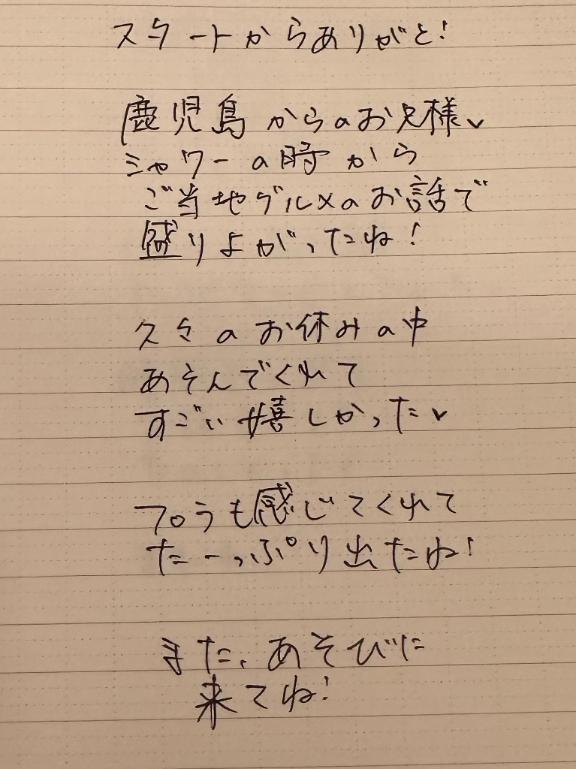 スタートからありがと!
鹿児島からのお兄様♥
シャワーの時から
ご当地グルメのお話で
盛りよがったね!
久々のお休みの中
あそんでくれて
すごい嬉しかった♥
フ○うも感じてくれて
たーっぷり出たね!
また、あそびに
来てね!